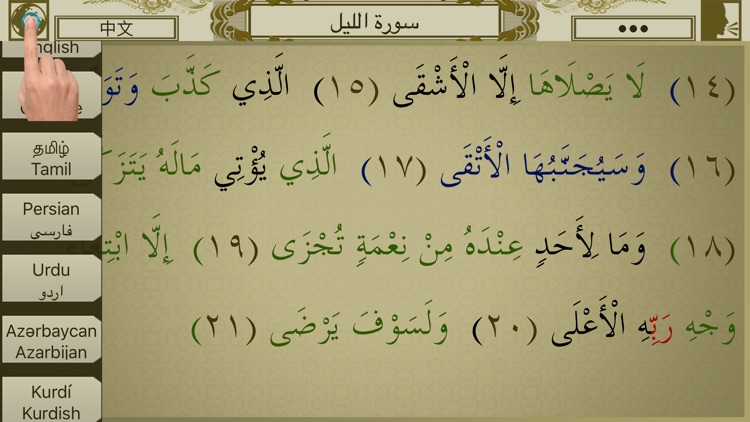 中文
سورة الليل
•••
nglish
தமிழ்
Tamil
Persian
فارسی
Urdu
اردو
Azərbaycan
Azarbijan
Kurdí
Kurdish
(١٤) لَا يَصْلَاهَا إِلَّا الْأَشْقَى (١٥) الَّذِي كَذَّبَ وَتَوَ
(١٦) وَسَيُجَنَّبُهَا الْأَتْقَى (١٧) الَّذِي يُؤْتِي مَالَهُ يَتَزَكَّ
(١٨) وَمَا لِأَحَدٍ عِنْدَهُ مِنْ نِعْمَةٍ تُجْزَى (١٩) إِلَّا ابْتِغَاءَ
وَجْهِ رَبِّهِ الْأَعْلَى (٢٠) وَلَسَوْفَ يَرْضَى (٢١)